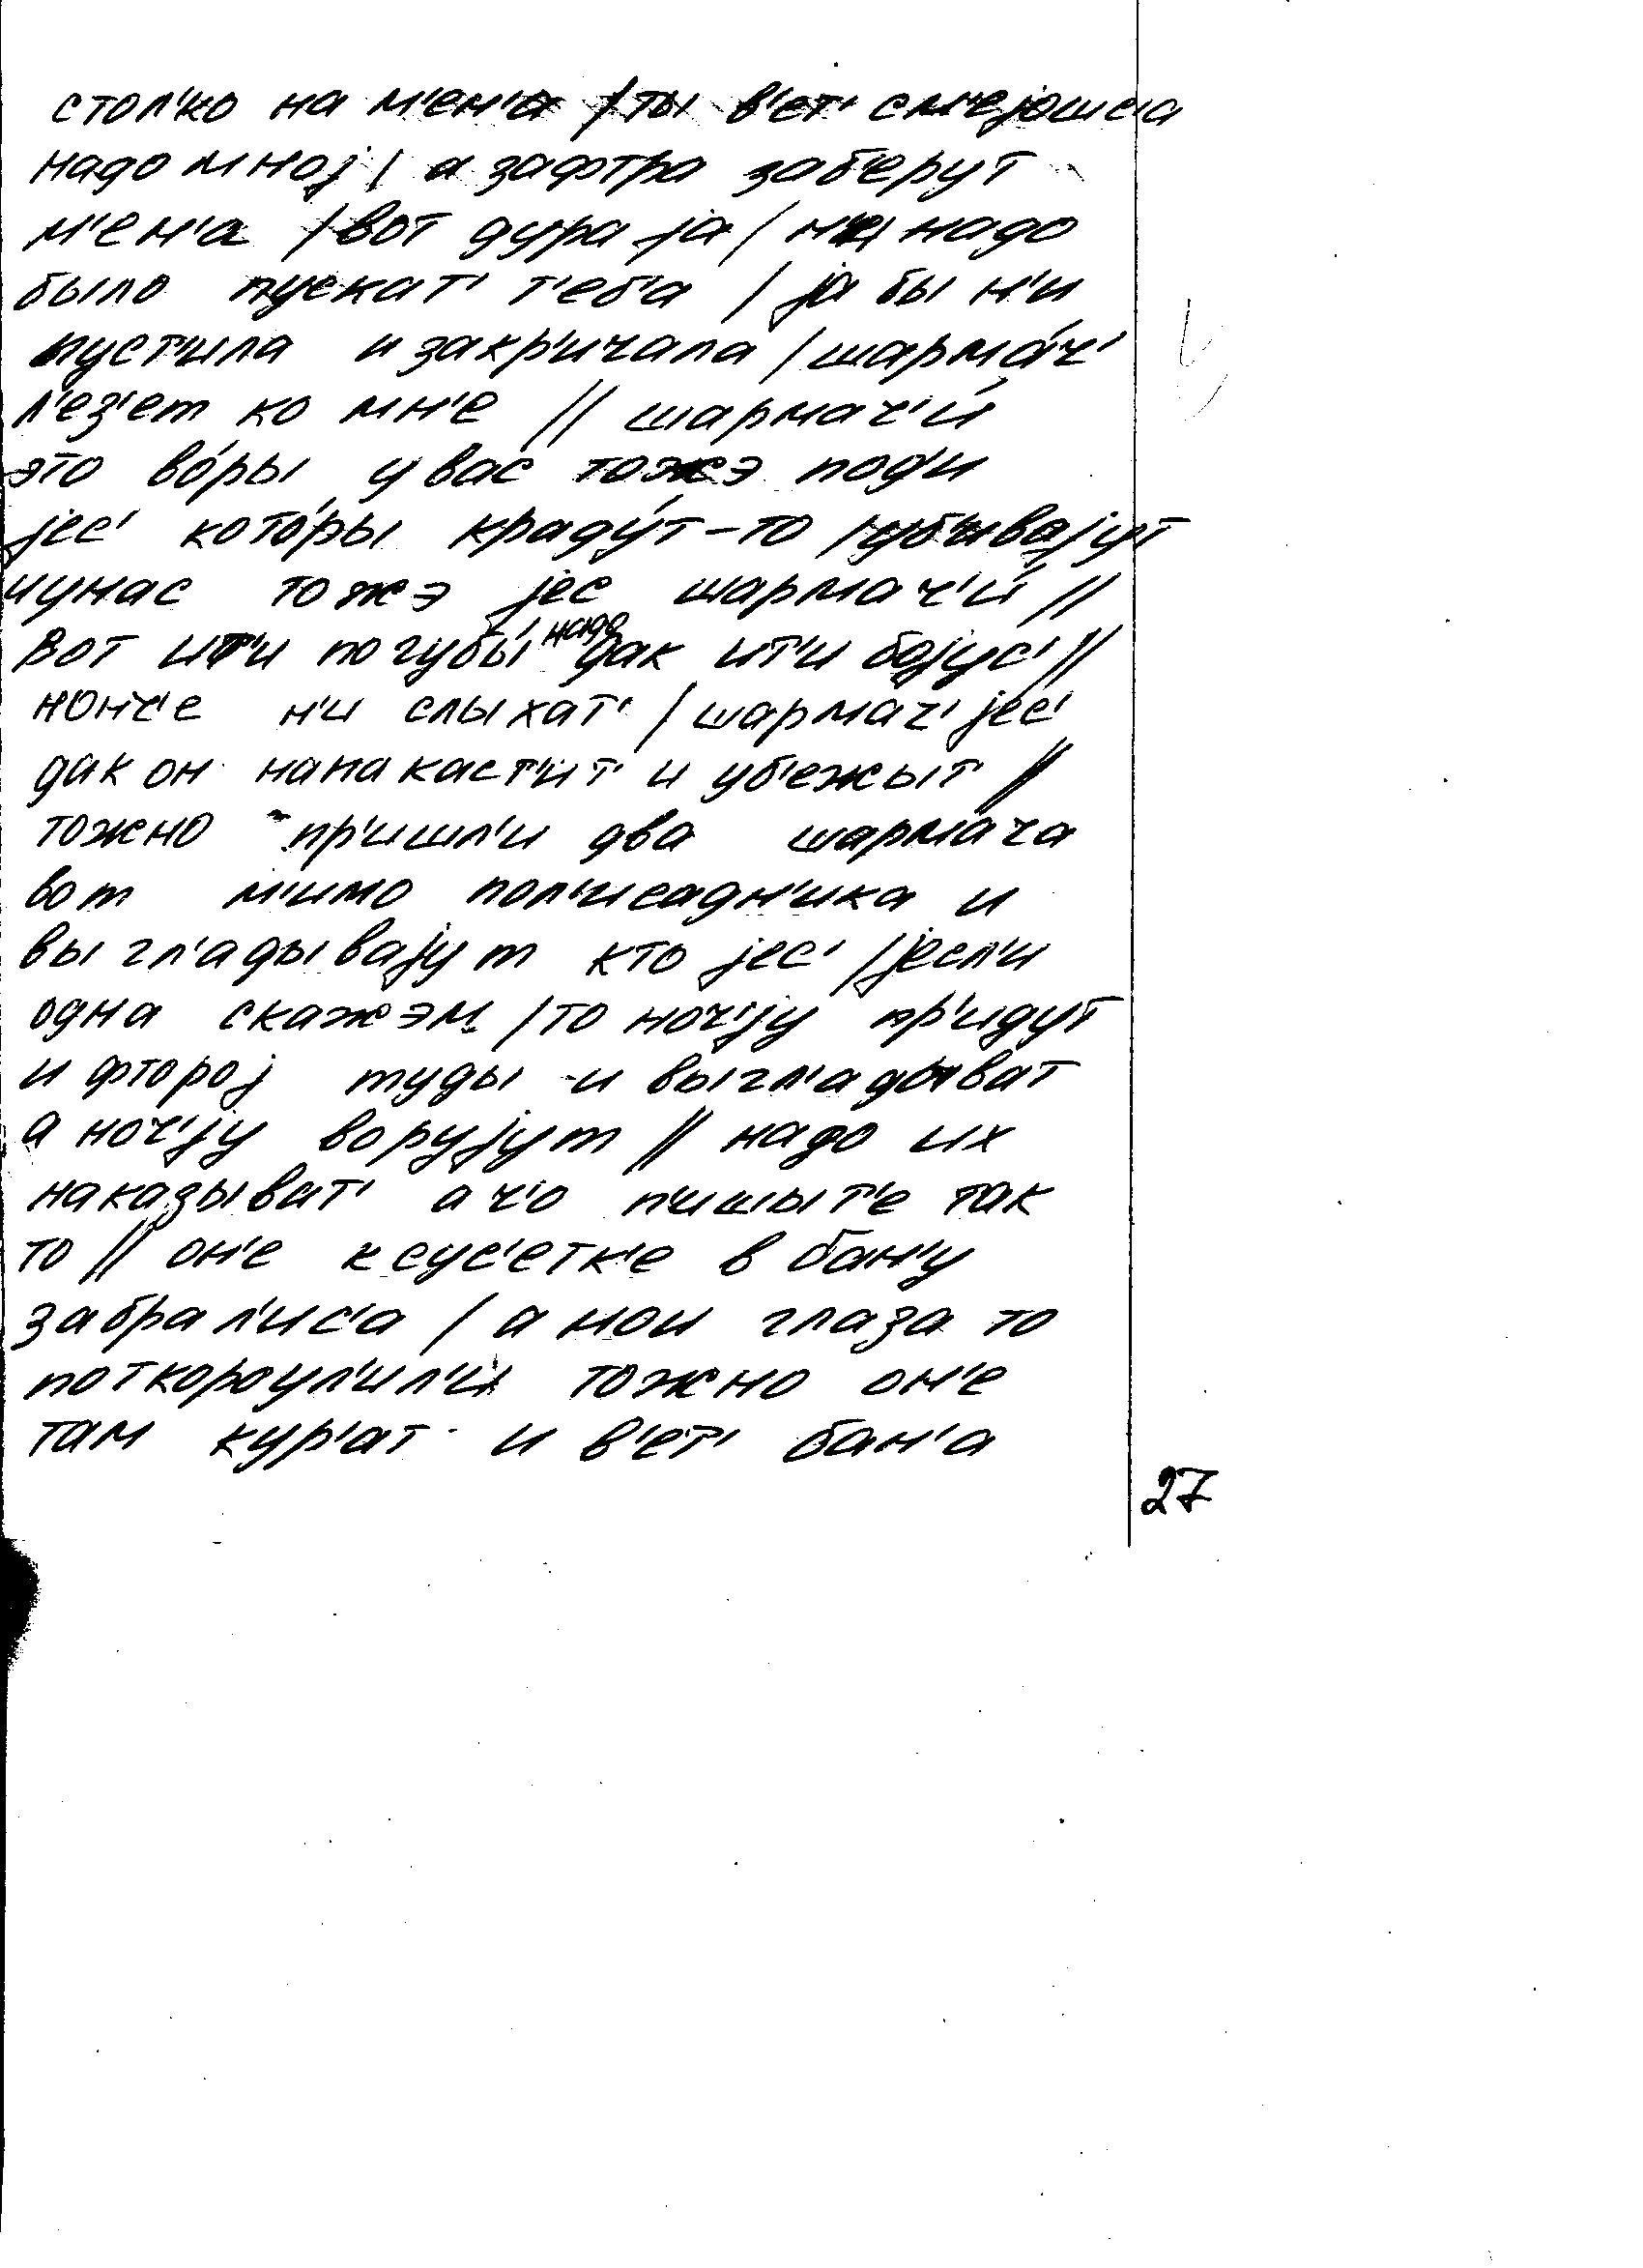 стол'ко на м'ен'а / ты в'ет' см'ејошс'а
надо мној / а зафтра заб'ерут
м'ен'а / вот дура ја / н'и надо
было пускат' т'еб'а / ја бы н'и
пуст'ила и закр'ичала / шарма́ч'
л'ез'ет ко мн'е // шармач'и́
это во́ры у вас тожэ под'и
јес' кото́ры краду́т-то / уб'ивајут
и у нас тожэ јес шармач'и́ //
вот ит'и по губы́ надо дак ит'и бојус' //
нонч'е н'и слыхат' / шармач' јес'
дак он напакаст'ит и уб'ежыт //
тожно пр'ишл'и два шарма́ча
вот м'имо пол'исадн'ика и
выгл'адывајут кто јес' / јесл'и
одна скажэм / то ноч'ју пр'идут
и фторој туды и выгл'адыват
а ноч'ју ворујут // надо их
наказыват' а ч'о п'ишыт'е так
то // он'е к сус'етк'е в бан'у
забрал'ис'а / а мои глаза то
поткороул'ил'и тожно он'е
там кур'ат и в'ет' бан'а
27